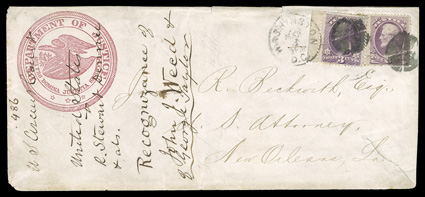 DEPARTMENT OF JUSTICE
WASHINGTON
D.C.
J. R. Beckwith, Esq.
U. S. Attorney,
New Orleans, La
486
United States
R. Stewart
& als.
Recognizance of
John J. Weed &
George Taylor